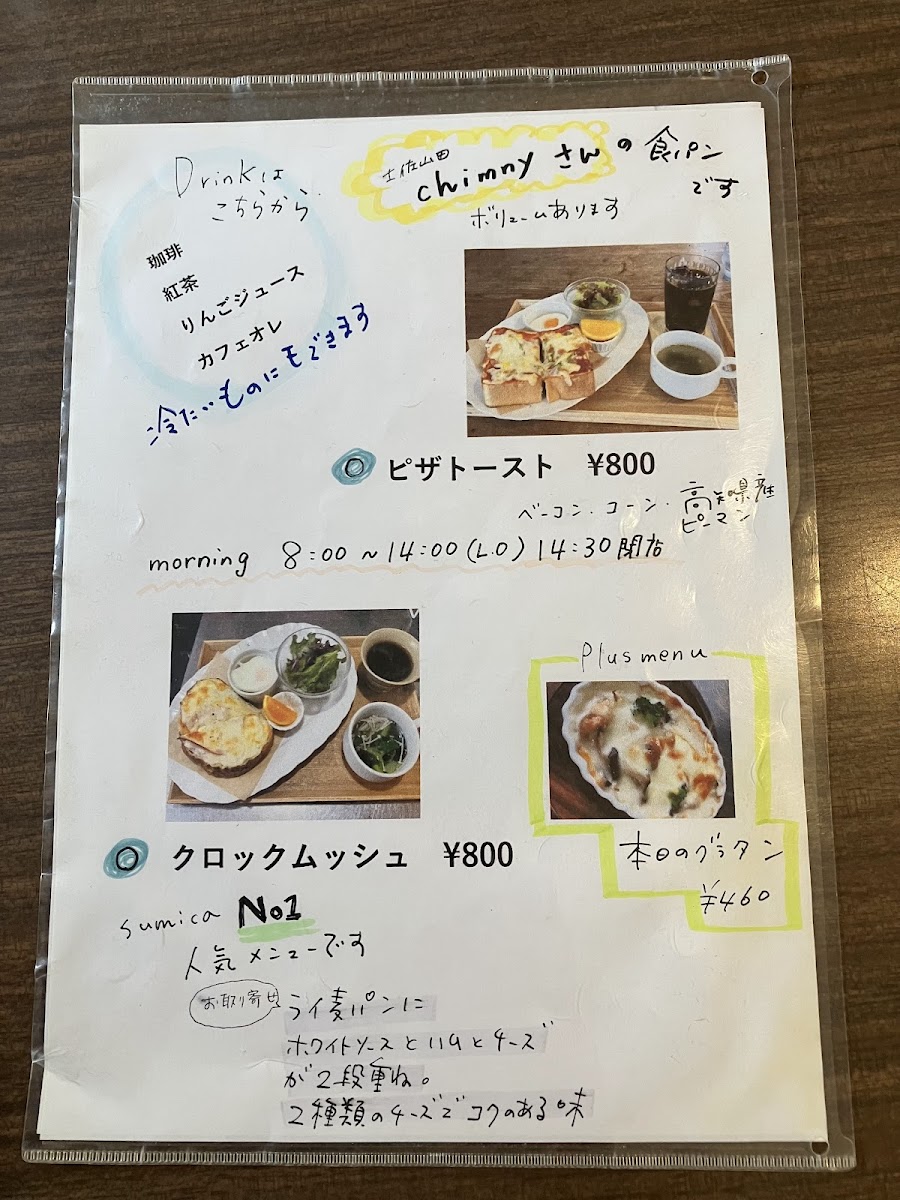 Drinkは
こちらから
珈琲
紅茶
りんごジュース
カフェオレ
冷たいものにもできます
土佐山田
chimny さんの食パン
です
ボリュームあります
ピザトースト ¥800
ベーコン.コーン.高知県産
ピーマン
morning 8:00~14:00(L.O) 14:30閉店
Plus menu
本日のグラタン
¥460
クロックムッシュ ¥800
sumica No1
人気メニューです
お取り寄せ
ライ麦パンに
ホワイトソースとハムとチーズ
が2段重ね。
2種類のチーズでコクのある味